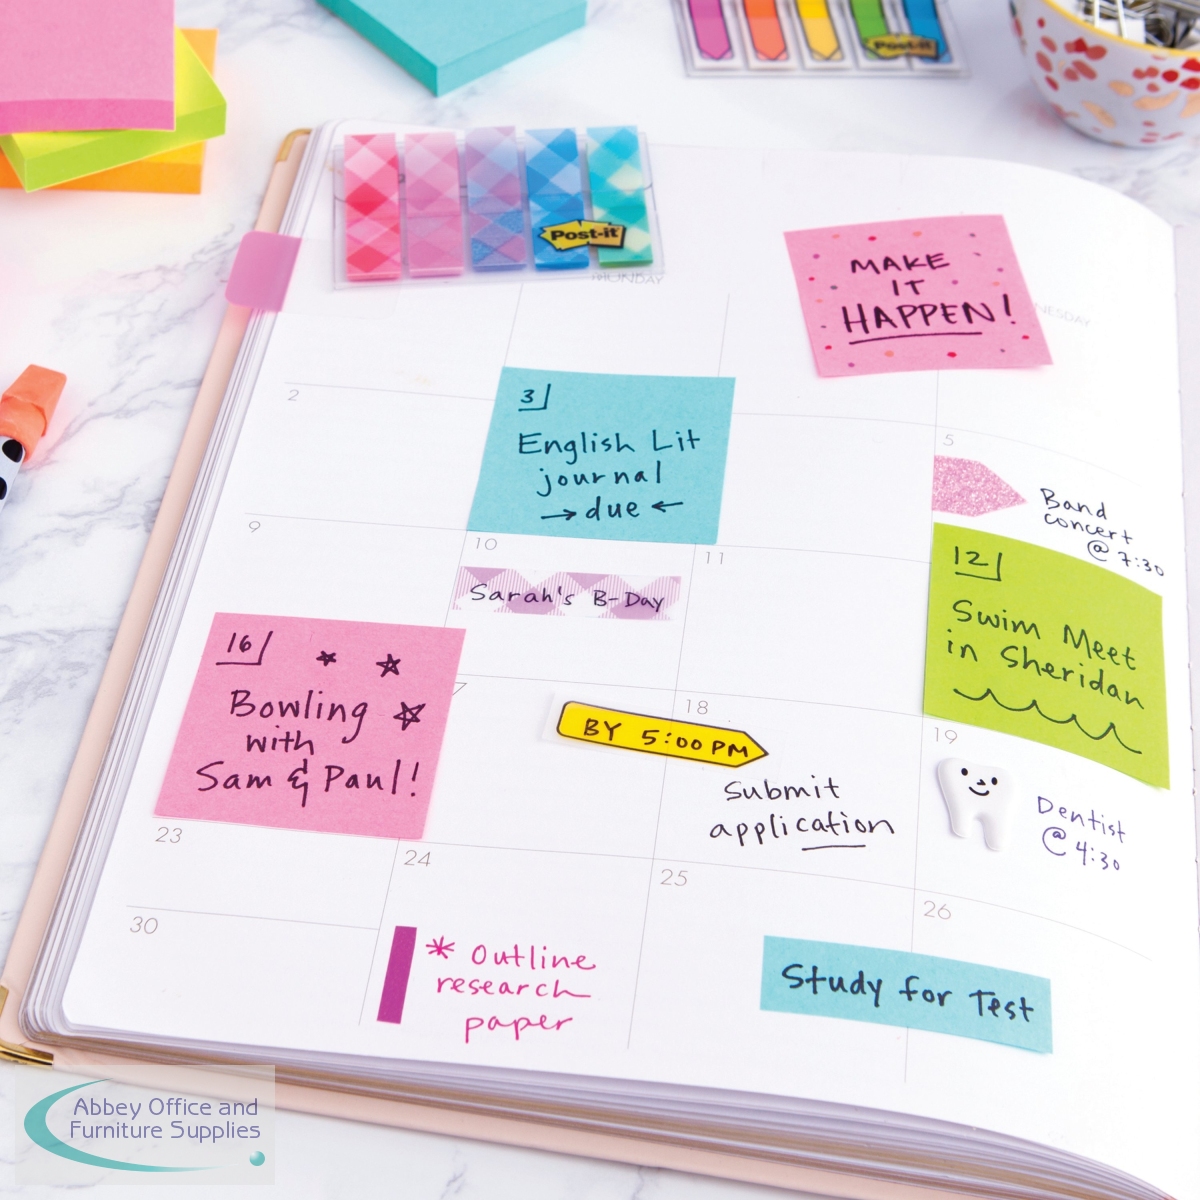 Post-it
Post-it
MONDAY
MAKE
IT
HAPPEN!
2
3
English Lit
journal
→ due ←
5
Band
concert
@ 7:30
9
10
Sarah's B-Day
11
12
Swim Meet
in Sheridan
16
Bowling
with
Sam & Paul!
18
BY 5:00 PM
Submit
application
19
Dentist
@ 4:30
23
24
* Outline
research
paper
25
26
Study for Test
30
Abbey Office and
Furniture Supplies